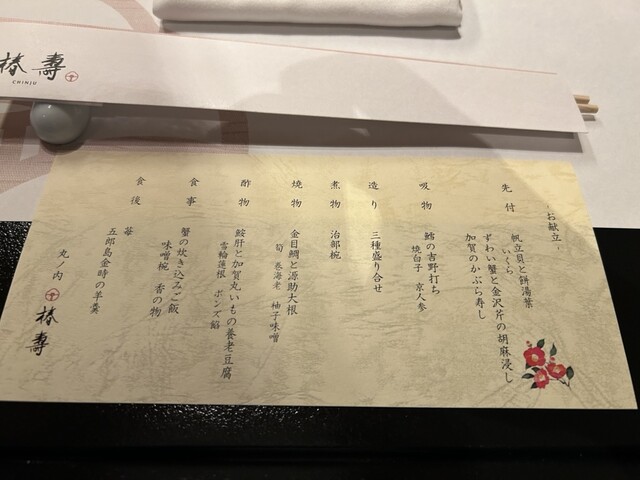 椿壽
CHINJU
-お献立-
先付
帆立貝と餅湯葉
いくら
ずわい蟹と金沢芹の胡麻浸し
加賀のかぶら寿し
吸物
鱈の吉野打ち
焼白子 京人参
造り
三種盛り合せ
煮物
治部椀
焼物
金目鯛と源助大根
筍 巻海老 柚子味噌
酢物
鮟肝と加賀丸いもの養老豆腐
雪輪蓮根 ポンズ餡
食事
蟹の炊き込みご飯
味噌椀 香の物
食後
苺
五郎島金時の羊羹
丸ノ内
椿壽